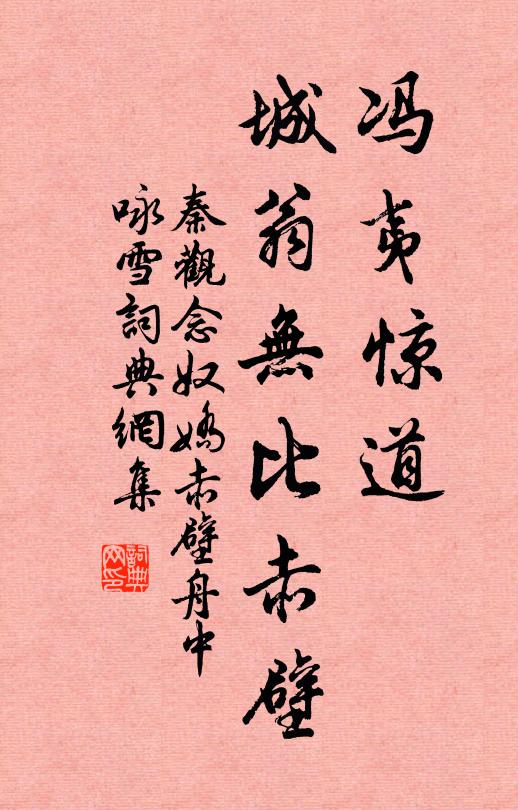 冯夷惊道
城翁無比赤壁
秦觀念奴嬌赤壁舟中
咏雪詞典網集
詞典網印